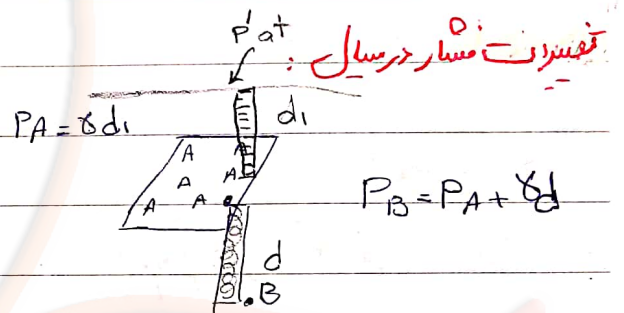 تغییرات فشار در سیال :
P at
d₁
P_A = γd₁
A A
A A
A A
P_B = P_A + γd
d
B